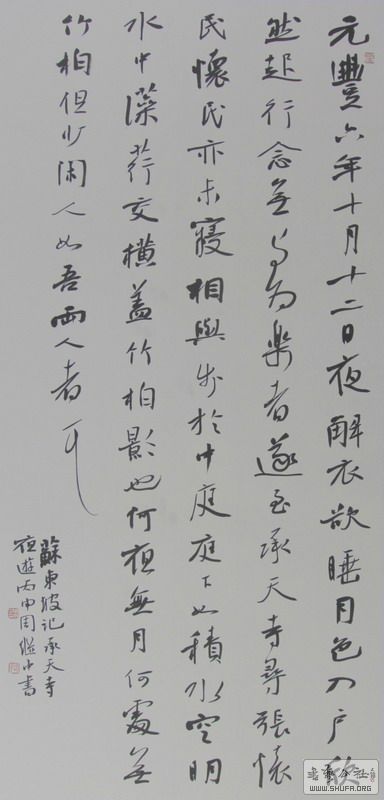 元豐六年十月十二日夜解衣欲睡月色入户欣
然起行念无与为樂者遂至承天寺尋張懷
民懷民亦未寢相與步於中庭庭下如積水空明
水中藻荇交橫蓋竹柏影也何夜無月何處无
竹柏但少閑人如吾兩人者耳
蘇東坡記承天寺
夜遊丙申周中書
WWW.SHUFA.ORG